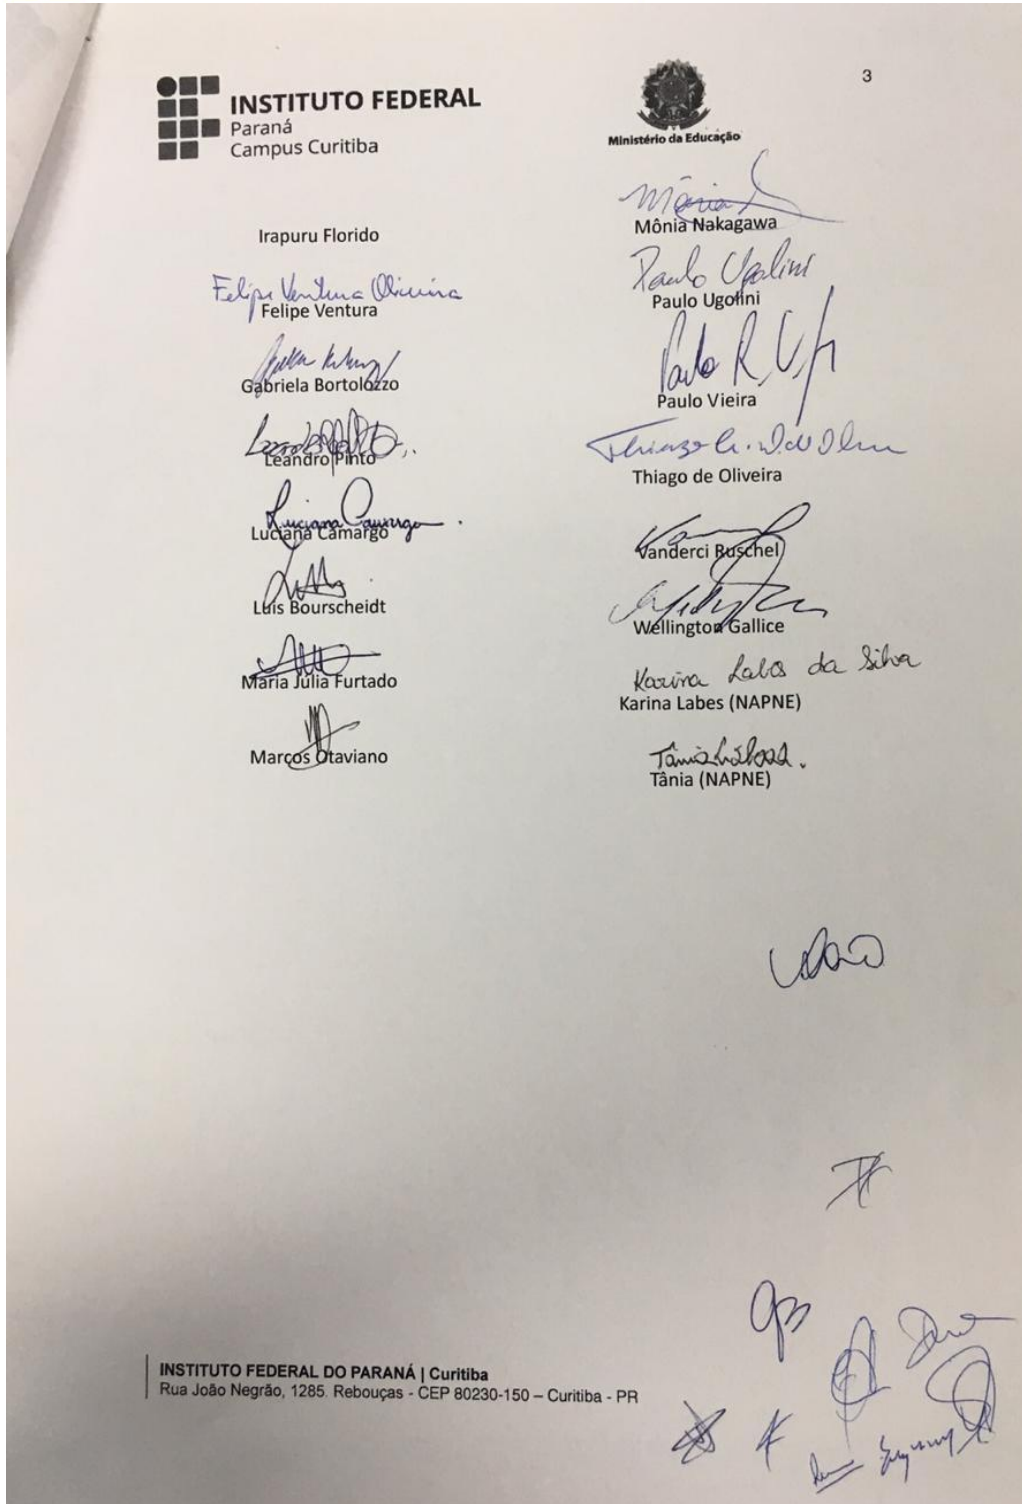 3
INSTITUTO FEDERAL
Paraná
Campus Curitiba
Ministério da Educação
Irapuru Florido
Felipe Ventura Oliveira
Felipe Ventura
Gabriela Bortolozzo
Leandro Pinto
Luciana Camargo
Luciana Camargo
Luis Bourscheidt
Maria Júlia Furtado
Marcos Otaviano
Mônia
Mônia Nakagawa
Paulo Ugolini
Paulo Ugolini
Paulo R. V. Jr
Paulo Vieira
Thiago de Oliveira
Vanderci Ruschel
Wellington Gallice
Karina Labes da Silva
Karina Labes (NAPNE)
Tânia
Tânia (NAPNE)
INSTITUTO FEDERAL DO PARANÁ | Curitiba
Rua João Negrão, 1285. Rebouças - CEP 80230-150 – Curitiba - PR